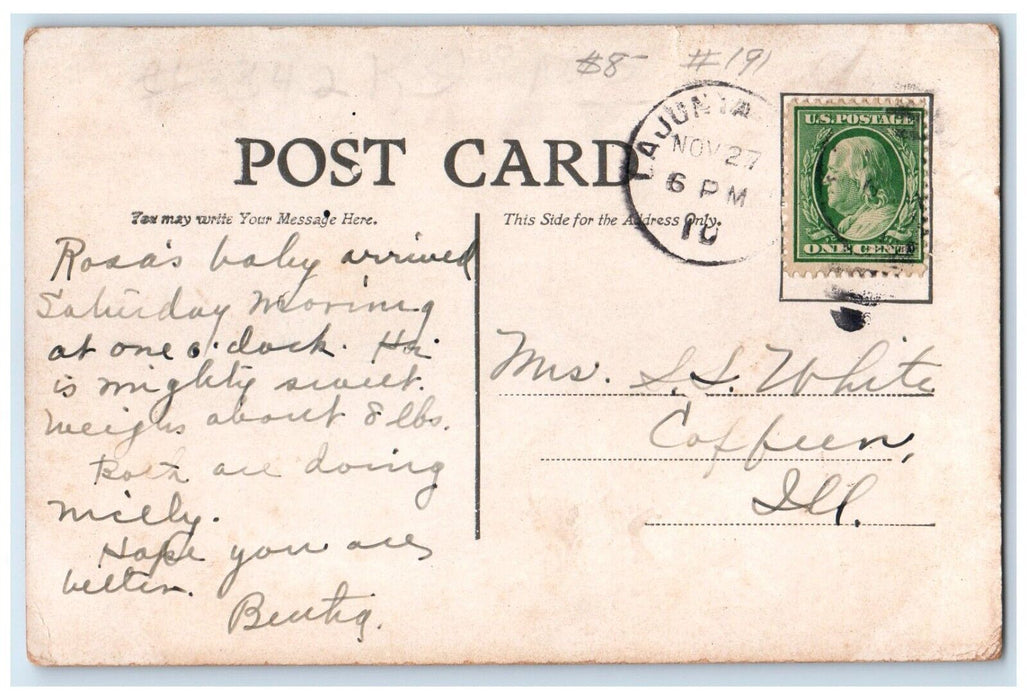 $8- #191
POST CARD
LA JUNTA
NOV 27
6 PM
10
U.S. POSTAGE
ONE CENT
You may write Your Message Here.
This Side for the Address Only.
Rosa's baby arrived
Saturday Morning
at one o'clock. He
is mighty sweet.
Weighs about 8 lbs.
Both are doing
nicely.
Hope you are
better.
Mrs. S. S. White
Coffeen,
Ill.